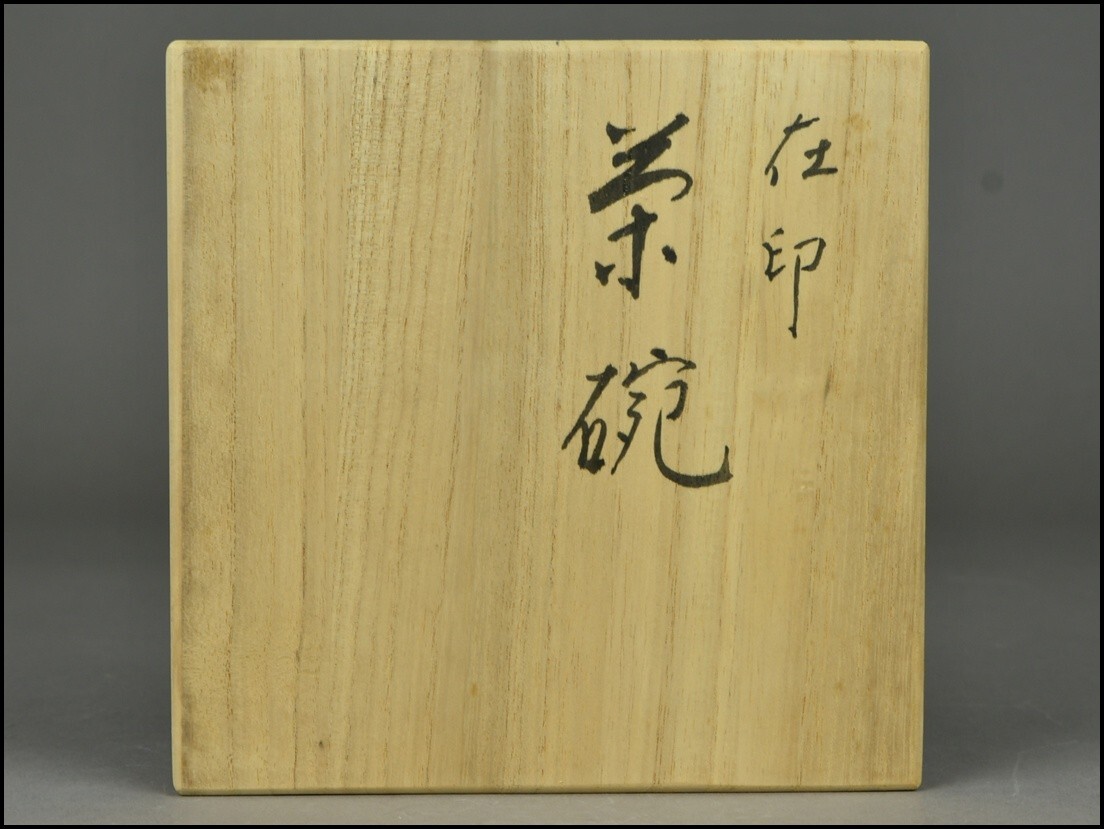 在印
茶碗